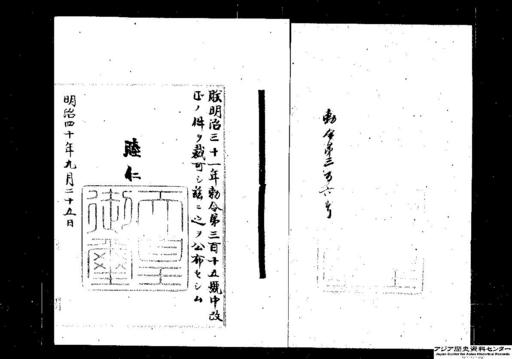 勅令第三百六号
朕明治三十一年勅令第三百十五號中改
正ノ件ヲ裁可シ茲ニ之ヲ公布セシム
睦仁
天皇
御璽
明治四十年九月二十五日
アジア歴史資料センター
Japan Center for Asian Historical Records